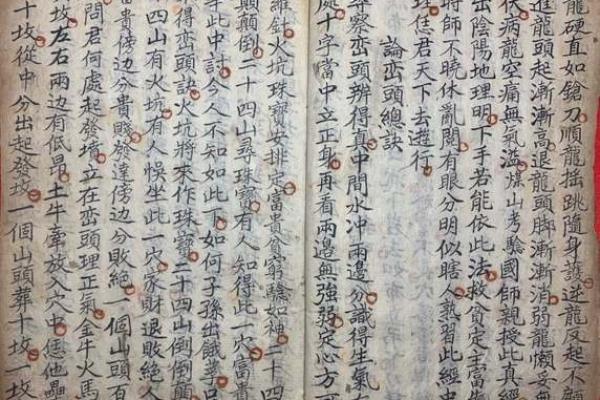 龍硬直如鎗刀順龍搖跳隨身護逆龍反起不
進龍頭起漸漸高退龍頭脚漸漸消弱龍懶妄無
伏病龍空痛無氣滋煤山考驗國師親授此真經
出陰陽地理明下手若能依此法救貧定主富
時師不曉休亂閙有眼分明似瞎人熟習此經中
珠恁君天下去遊行
論巒頭總訣
尋察巒頭辨得真中間水冲兩邊分識得生氣
處十字當中立正身再看兩邊無強弱定心方可
維針火坑珠寶安排定富貴貧窮驗如神二十四
顛顛倒二十四山尋珠寶有人知得此一穴富貴
乎此中討今人不知如此下如何子孫出餓莩只
來得巒頭訣火坑將來作珠寶二十四山倒倒顛
四山有火坑有人悞坐此一穴家財退敗絕人
貴傍邊分貴賤發達傍邊分敗絕一個山頭有
問君何處起發墳立在巒頭理正氣金牛火馬
坟左右兩边有低昂土牛牽放入穴中憑他壘
十坟從中分出起發坟一個山頭葬十坟一坟